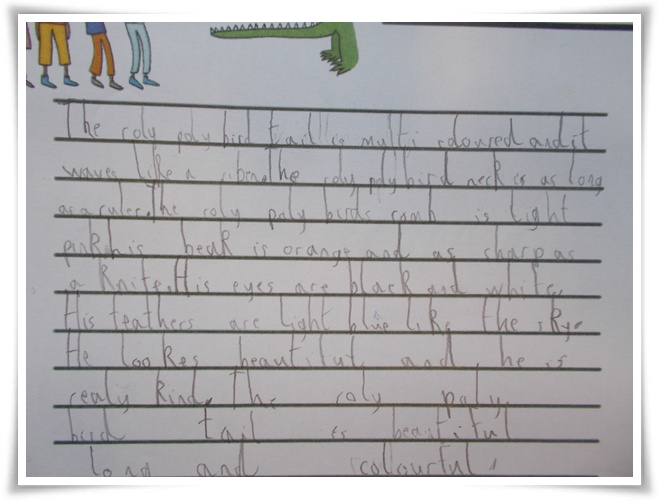 The roly poly bird tail is multi coloured and it
waves like a riben. The roly poly bird neck is as long
as a ruler. The roly poly birds comb is light
pink. his beak is orange and as sharp as
a knife. His eyes are black and white.
His feathers are light blue like the sky.
He lookes beautiful and he is
realy kind. The roly poly
bird tail is beautiful
long and colourful